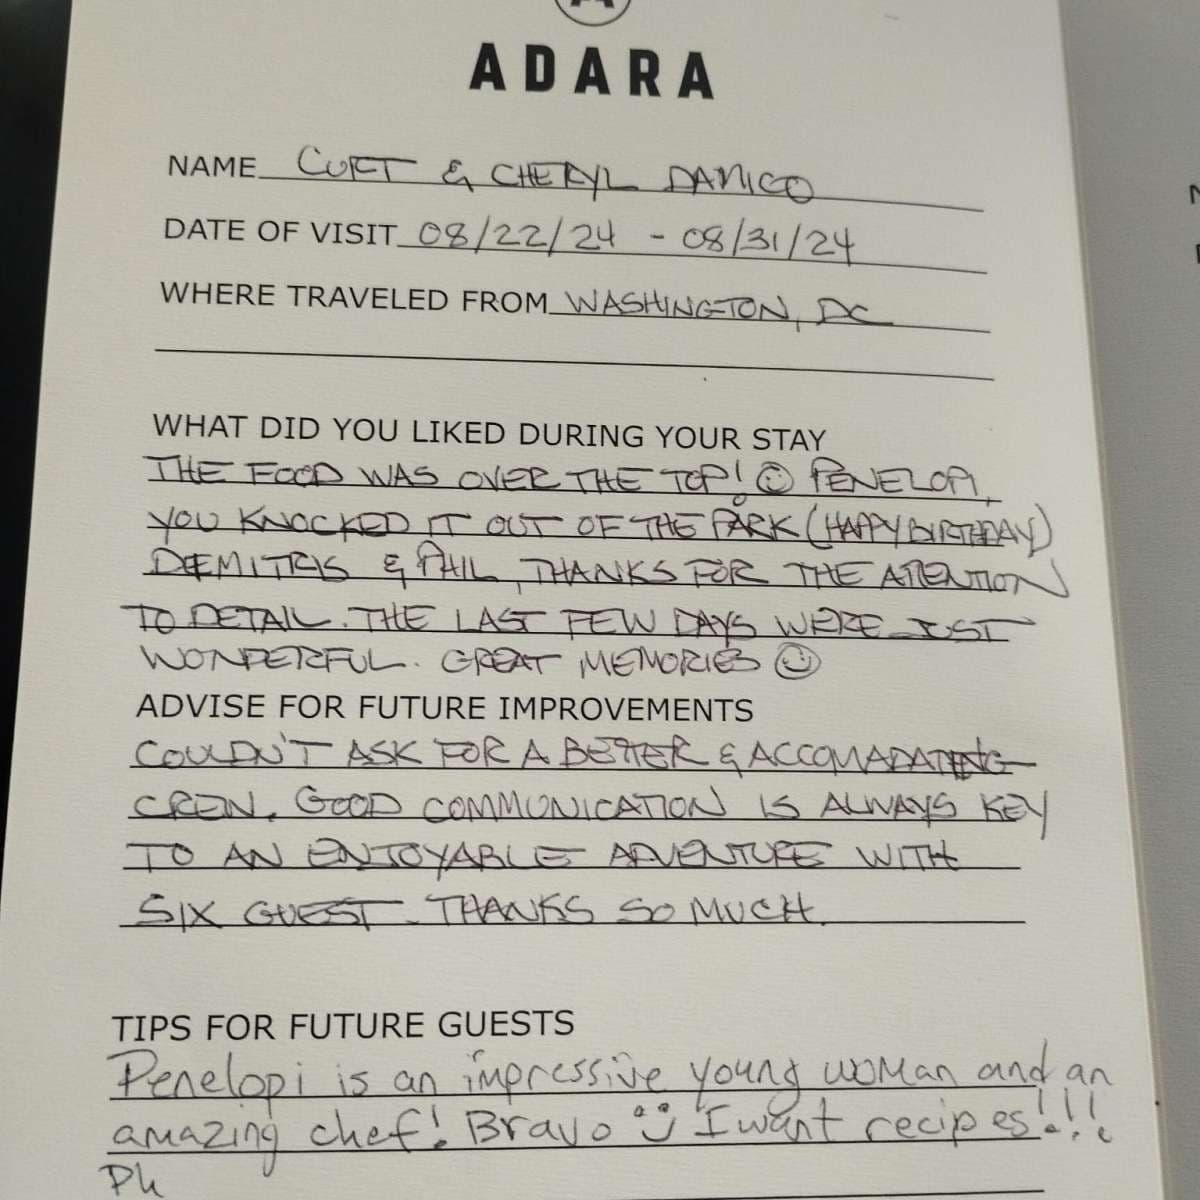 ADARA
NAME CURT & CHERYL DANICO
DATE OF VISIT 08/22/24 - 08/31/24
WHERE TRAVELED FROM WASHINGTON, DC
WHAT DID YOU LIKED DURING YOUR STAY
THE FOOD WAS OVER THE TOP! ☺ PENELOPI,
YOU KNOCKED IT OUT OF THE PARK (HAPPY BIRTHDAY)
DEMITRIS & PHIL, THANKS FOR THE ATENTION
TO DETAIL. THE LAST FEW DAYS WERE JUST
WONDERFUL. GREAT MEMORIES ☺
ADVISE FOR FUTURE IMPROVEMENTS
COULDN'T ASK FOR A BETTER & ACCOMADATING
CREW. GOOD COMMUNICATION IS ALWAYS KEY
TO AN ENJOYABLE ADVENTURE WITH
SIX GUEST. THANKS SO MUCH.
TIPS FOR FUTURE GUESTS
Penelopi is an impressive young woman and an
amazing chef! Bravo ☺ I want recipes!!!